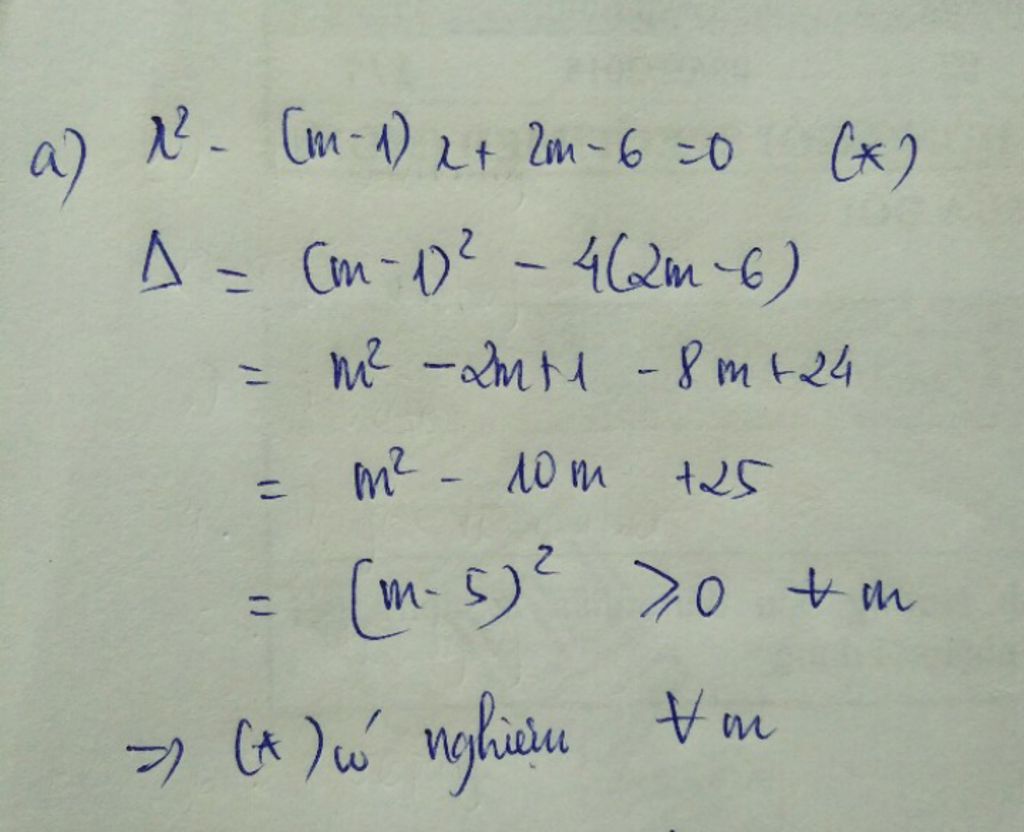 a) x² - (m-1) x + 2m - 6 = 0 (*)
Δ = (m-1)² - 4(2m-6)
= m² - 2m + 1 - 8m + 24
= m² - 10m + 25
= (m-5)² ⩾ 0 ∀ m
=> (*) có nghiệm ∀ m